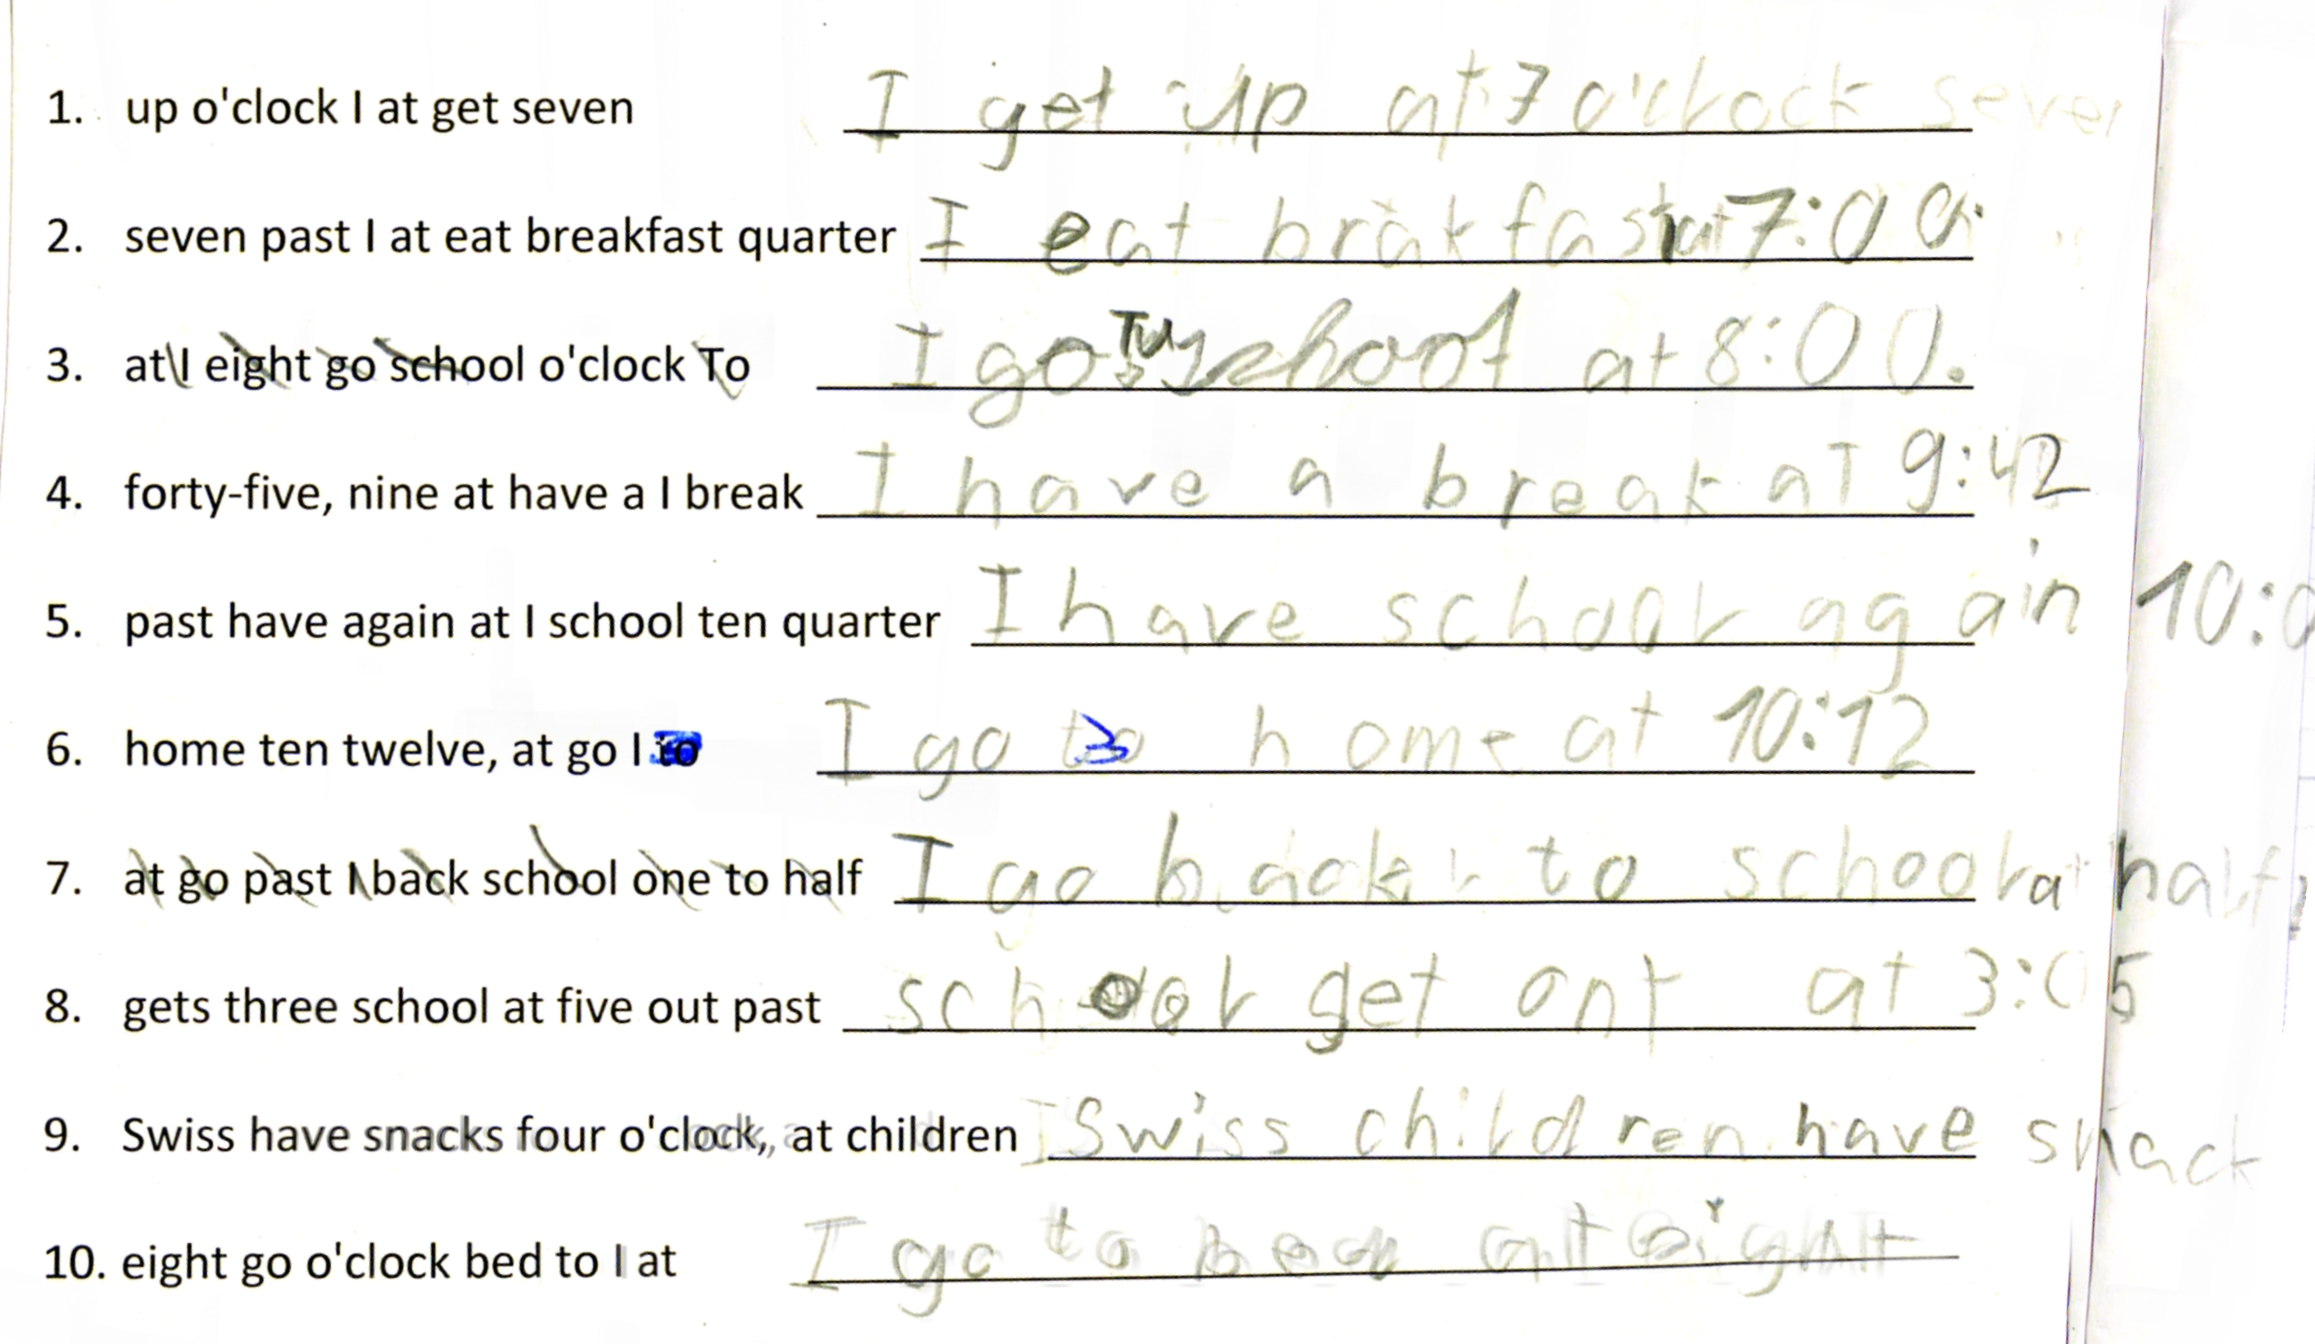 1. up o'clock I at get seven I get up at 7 o'clock seven
2. seven past I at eat breakfast quarter I eat brakfast at 7:00.
3. at I eight go school o'clock To I go school at 8:00.
4. forty-five, nine at have a I break I have a break at 9:42
5. past have again at I school ten quarter I have school again 10:0
6. home ten twelve, at go I to I go to home at 10:12
7. at go past I back school one to half I go back to school at half
8. gets three school at five out past school get ont at 3:05
9. Swiss have snacks four o'clock, at children Swiss children have snack
10. eight go o'clock bed to I at I go to bed at eight